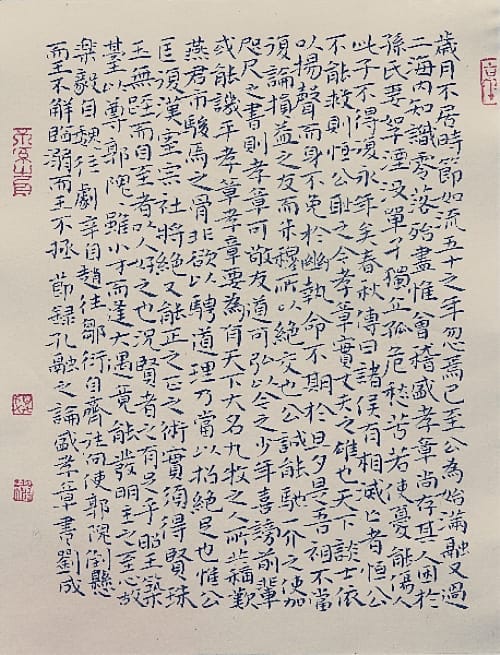 歲月不居時節如流五十之年忽焉已至公為始滿融又過
二海內知識零落殆盡惟會稽盛孝章尚存其人困於
孫氏妻孥湮沒單孑獨立孤危愁苦若使憂能傷人
此子不得復永年矣春秋傳曰諸侯有相滅亡者恒公
不能救則恒公恥之今孝章實丈夫之雄也天下談士依
以揚聲而身不免於幽執命不期於旦夕是吾祖不當
復論損益之友而朱穆所以絕交也公誠能馳一介之使加
咫尺之書則孝章可致友道可弘矣今之少年喜謗前輩
或能譏平孝章孝章要為有天下大名九牧之人所共稱歎
燕君市駿馬之骨非欲以騁道理乃當以招絕足也惟公
匡復漢室宗社將絕又能正之正之術實須得賢珠
玉無脛而自至者以人好之也況賢者之有足乎昭王築
臺以尊郭隗隗雖小才而逢大遇竟能發明主之至心故
樂毅自魏往劇辛自趙往鄒衍自齊往向使郭隗倒懸
而王不解臨溺而王不拯 節錄孔融之論盛孝章書 劉成